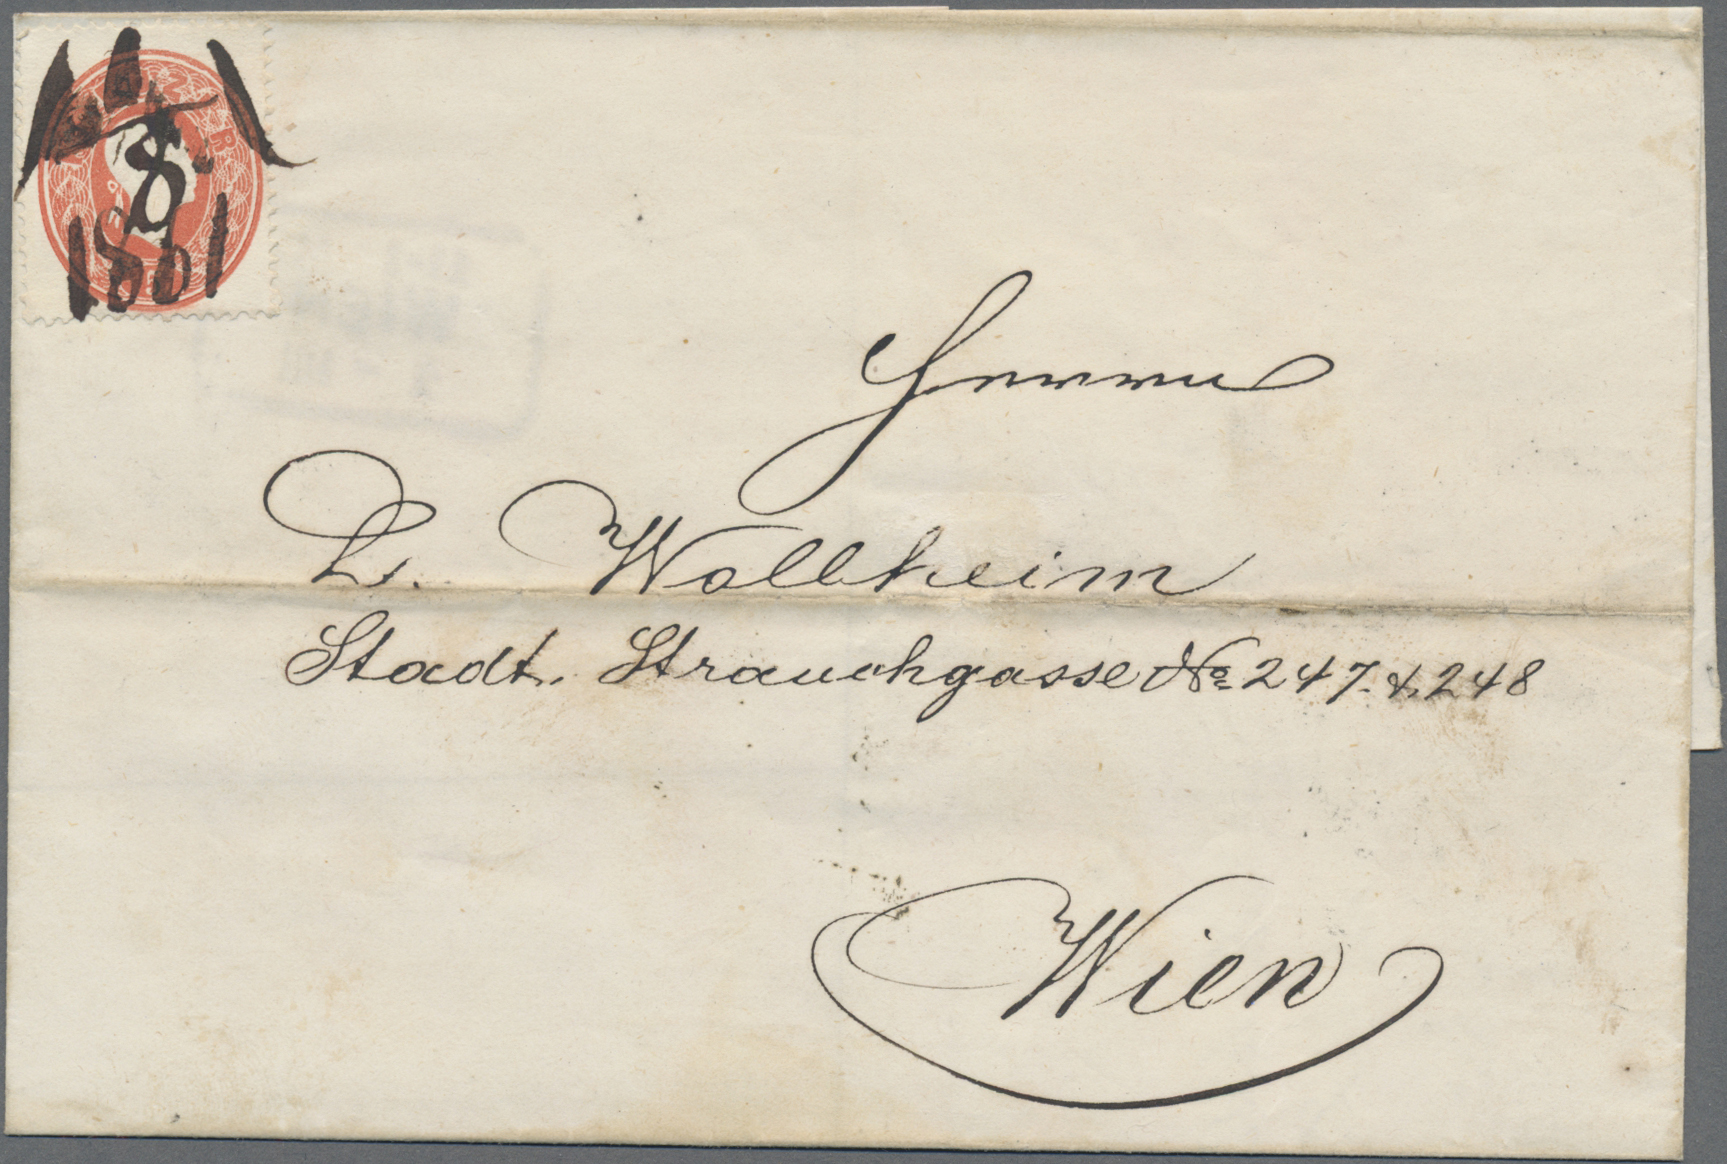 8
1861
Herrn
L. Wollheim
Stadt, Strauchgasse No 247. & 248
Wien